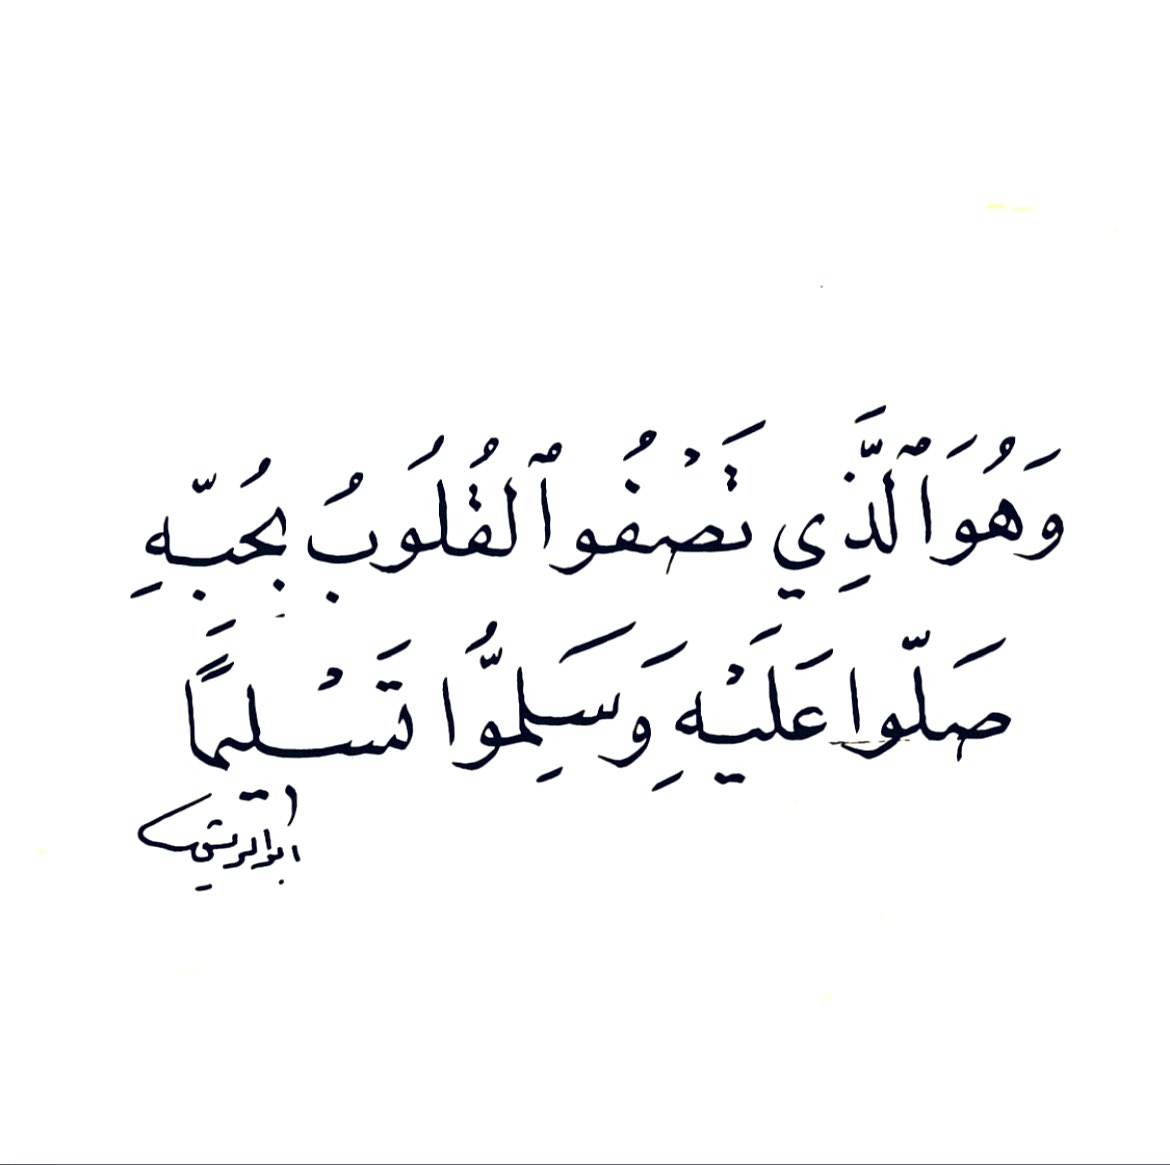 وَهُوَ ٱلَّذِي تَصْفُوا ٱلقُلُوبُ بِحُبّهِ
صَلّوا عَلَيْهِ وَسَلِمُّوا تَسْلِيمًا
ابو الريش